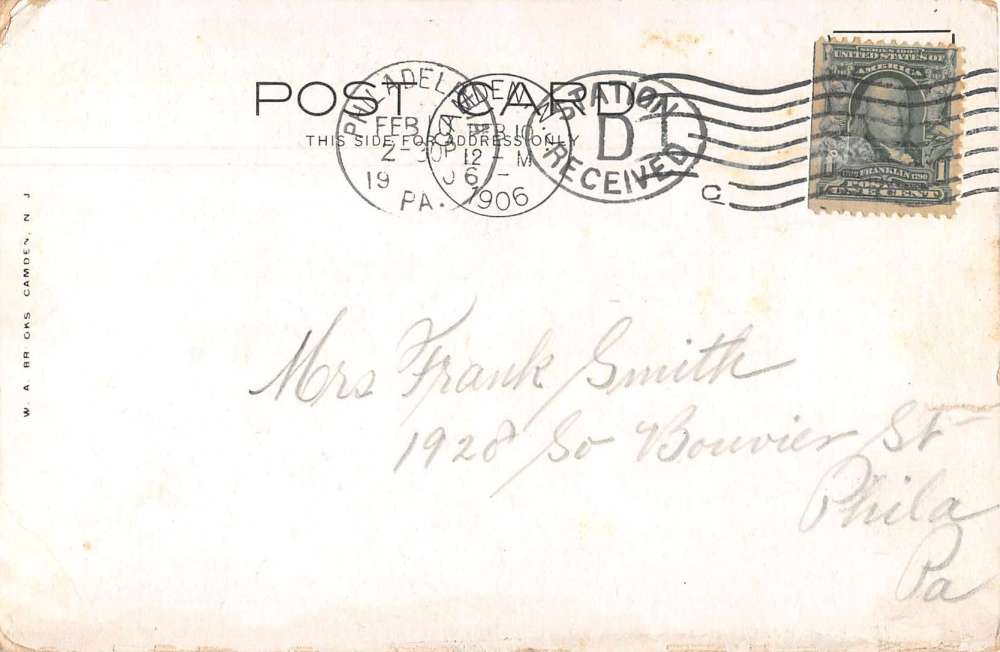 POST CARD
THIS SIDE FOR ADDRESS ONLY
PHILADELPHIA
FEB
2-30P
1906
PA.
CAMDEN
FEB 10
12-M
1906
STATION
D
RECEIVED
C
SERIES 1902
UNITED STATES OF
AMERICA
FRANKLIN
1 POSTAGE 1
ONE CENT
W. A. BROOKS CAMDEN, N J
Mrs Frank Smith
1928 So Bouvier St
Phila
Pa